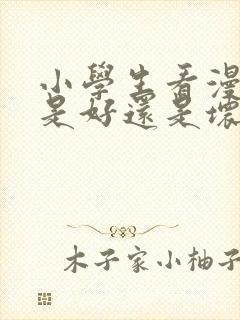 小學生看漫
是好還是壞
木子家小柚子